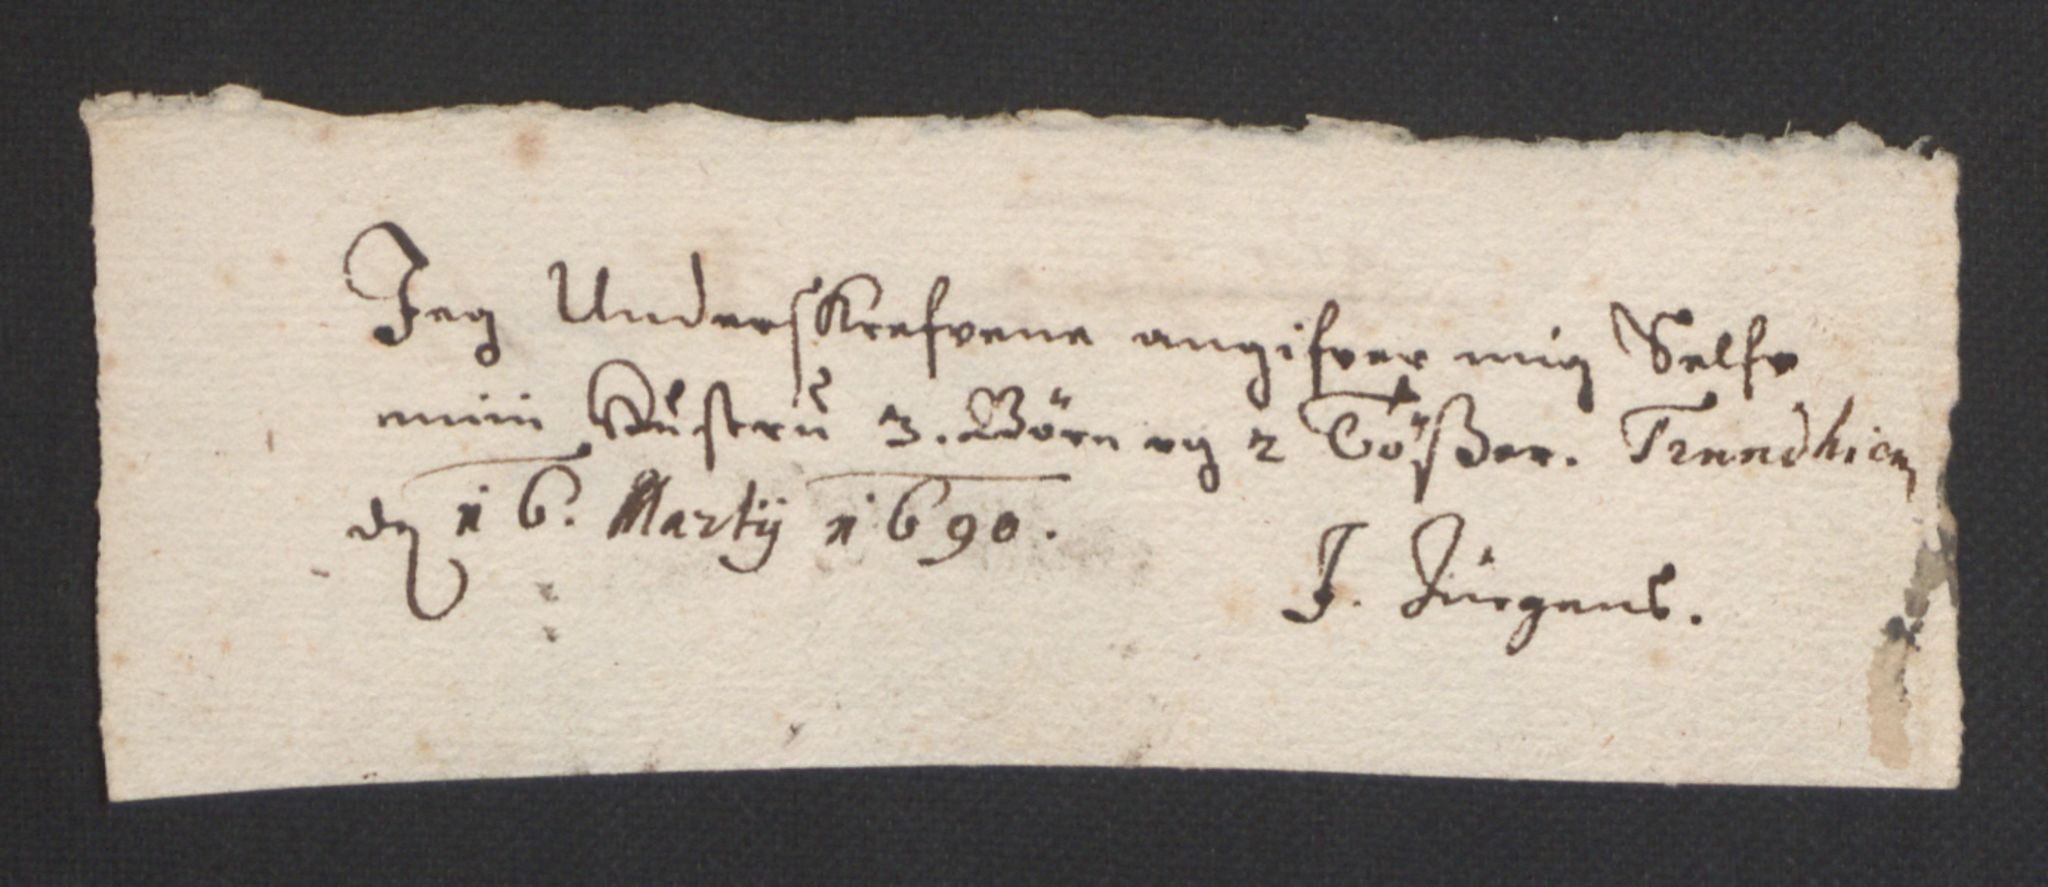 Jeg Underskrefvene angifver mig Selfv
min Hustru 3. Börn og 2 Tößer. Trundhiem
dn 16. Martij 1690.
J. Jürgens.